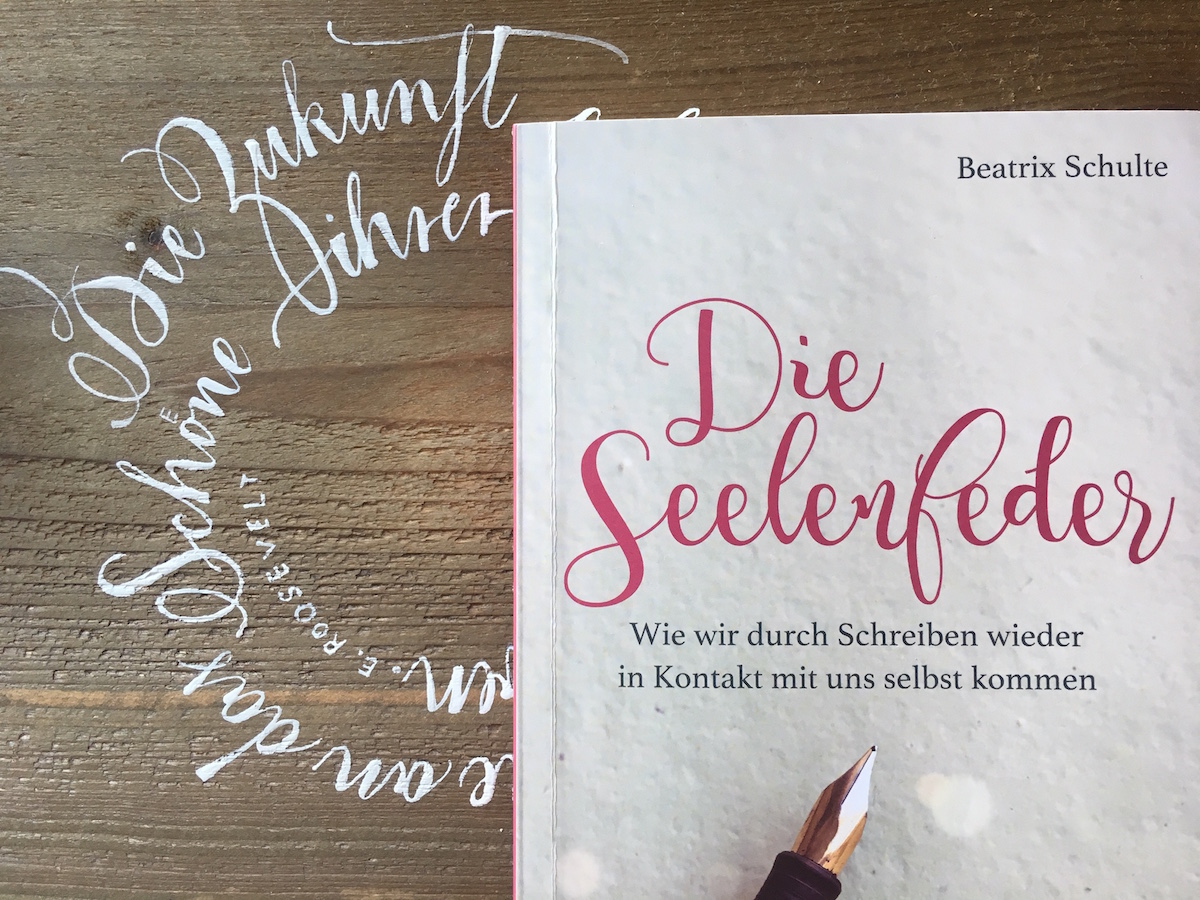 Die Zukunft
an das Schöne ihrer
E. ROOSEVELT
Beatrix Schulte
Die
Seelenfeder
Wie wir durch Schreiben wieder
in Kontakt mit uns selbst kommen